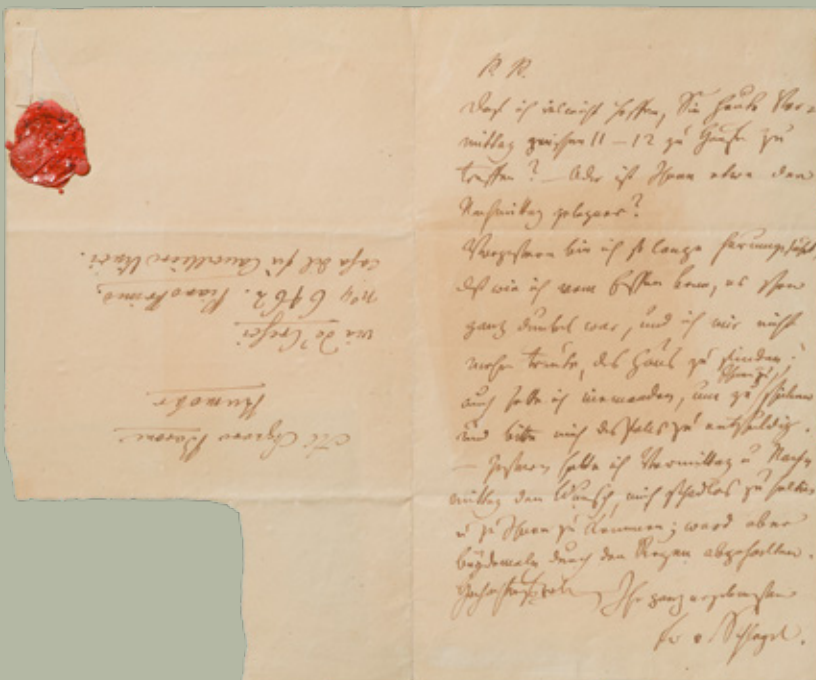 P. P.
Darf ich vielleicht hoffen, Sie heute Vor-
mittag zwischen 11 – 12 zu Hause zu
treffen? — Oder ist Ihnen etwa der
Nachmittag gelegner?
Vorgestern bin ich so lange
daß wie ich vom Essen kam, es schon
ganz dunkel war, und ich mir nicht
mehr traute, das Haus zu finden.
auch hatte ich niemanden, um zu schicken
und bitte mich deshalb zu entschuldigen.
— Gestern hatte ich Vormittag u Nach-
mittag den Wunsch, mich schadlos zu halten
u zu Ihnen zu kommen; ward aber
beydemale durch den Regen abgehalten.
Hochachtungsvoll Ihr ganz ergebenster
Fr v Schlegel.
Al Signore Barone
Rumohr
via de'
No 6462. Piano Primo,
casa del fu Cavalliere